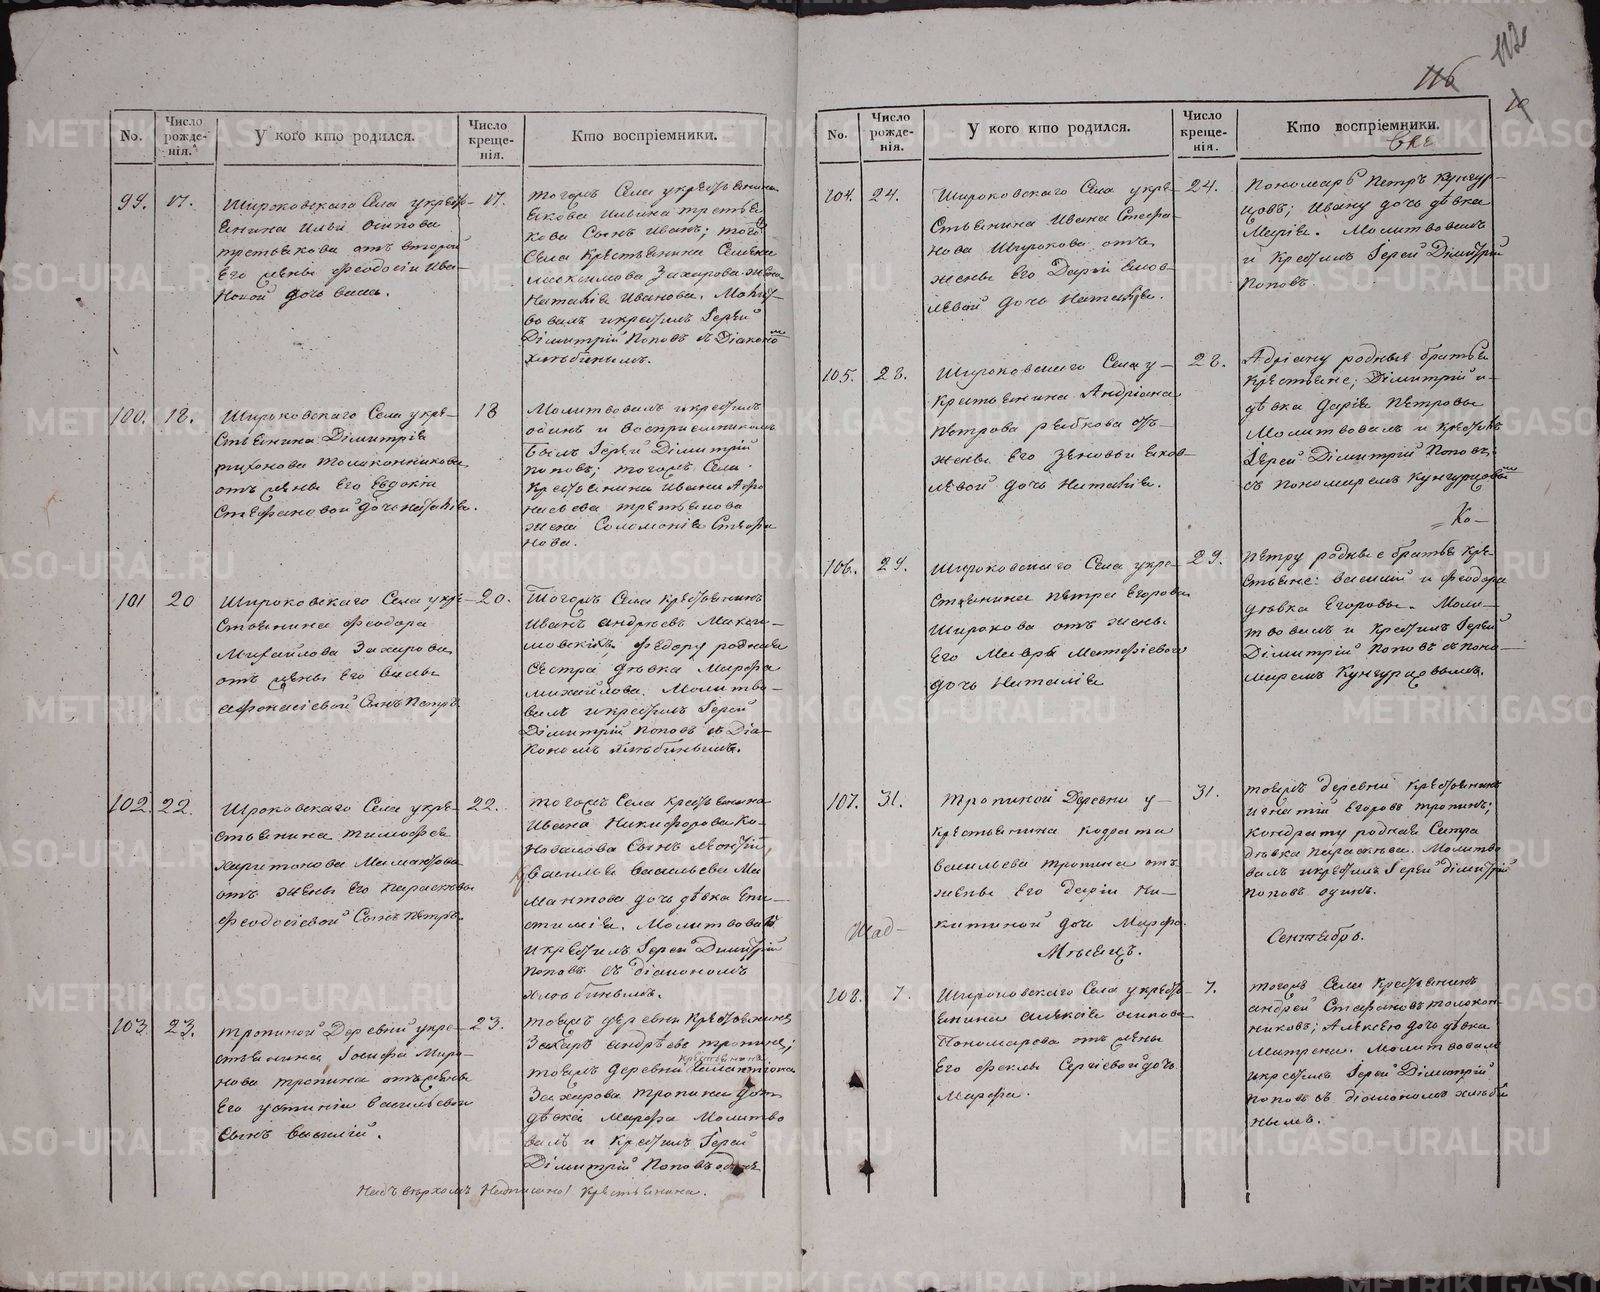 112
116
10
No.
Число рожде-нія.
У кого кто родился.
Число креще-нія.
Кто воспріемники.
99.
17.
Широковскаго Села укресть-
янина Ильи Осипова
третьякова отъ второй
Его жены Феодосіи Ива-
новой дочь Васа.
17.
тогожъ Села укрестьянина
Якова Ильина третья
кова Сынъ Иванъ; того
Села Крестьянина Семена
максимова Захарова жена
Наталія Иванова. Молит-
вовалъ икрестилъ Іерей
Дімитрій Поповъ съ Діаконо
Хлѣбинымъ.
100.
18.
Широковскаго Села укре-
стьянина Дімитрія
тихонова Толоконникова
отъ жены Его Евдокіи
Стефановой дочь Наталія.
18
Молитвовалъ икрестилъ
одинъ и воспріемникомъ
былъ Іерей Дімитрій
поповъ; тогожъ Села
Крестьянина Ивана Афо
насьева третьякова
жена Соломонія Стефа
нова.
101
20
Широковскаго Села укре-
стьянина Феодора
Михайлова Захарова
отъ жены Его Васы
Афонасіевой Сынъ Петръ.
20.
Тогожъ Села Крестьянинъ
Иванъ Андреевъ Макси-
мовскихъ, Федору родная
Сестра дѣвка Марфа
михайлова. Молитво-
валъ икрестилъ Іерей
Дімитрій Поповъ съ Діа-
кономъ Хлѣбинымъ.
102.
22.
Шроковскаго Села укре-
стьянина тимофея
харитонова Мамантова
отъ жены Его параскевы
Феодосіевой Сынъ петръ.
22.
тогожъ Села крестьянина
Ивана Никифорова Ко-
новалова Сынъ Леонтій,
Василья Васильева Ма
мантова дочь дѣвка Епи-
стимія. Молитвовалъ
икрестилъ Іерей Димитрій
поповъ съ діакономъ
Хлѣбинымъ.
103.
23.
тропиной Деревни укре-
стьянина Іосифа Миро-
нова тропина отъ жены
Его устиніи Васильевой
Сынъ Василій.
23.
тоежъ деревни Крестьянинъ
Захаръ андрѣевъ тропинъ;
крестьянина
тоежъ деревни
Захарова тропина дочь
дѣвка марфа молитво
валъ и крестилъ Іерей
Дімитрій поповъ одинъ
Надъ верхомъ Надписано! Крестьянина.
No.
Число рожде-нія.
У кого кто родился.
Число креще-нія.
Кто воспріемники.
104.
24.
Широковскаго Села укре-
стьянина Ивана Стефа-
нова Широкова отъ
жены Его Даріи Яков-
левой дочь Наталія.
24.
Пономарь Петръ Кунгур-
цовъ; Ивану дочь дѣвка
Марія. Молитвовалъ
и Крестилъ Іерей Дімитрій
Поповъ
105.
28.
Широковскаго Села у-
крестьянина Андріана
Петрова рябкова отъ
жены Его Зеновьи Яков-
левой дочь Наталія.
28.
Адріану родныя братья
Крестьяне; Дімитрій и
дѣвка Дарія Петровы
Молитвовалъ и Крестилъ
Іерей Дімитрій Поповъ.
съ пономаремъ Кунгурцовымъ
= Ко-
106.
29.
Широковскаго Села укре-
стьянина Петра Егорова
Широкова отъ жены
Его Мавры Матфіевой
дочь Наталія
29.
Петру родные братья Кре-
стьяне: василій и Феодора
дѣвка Егоровы. Моли-
твовалъ и Крестилъ Іерей
Дімитрій Поповъ съ Поно-
маремъ Кунгурцовымъ.
107.
31.
Тропиной Деревни у-
крестьянина кодрата
васильева тропина отъ
жены Его Даріи Ни-
китиной дочь Марфа.
31.
тоежъ деревни Крестьянинъ
игнатій Егоровъ тропинъ;
Кондрату родная Сетра
дѣвка параскева. Молитво
валъ икрестилъ Іерей Дімитрій
поповъ одинъ.
Мѣсецъ.
Сентябрь.
108.
7.
Широковскаго Села укресть-
янина алексѣя осипова
Пономарева отъ жены
Его Феклы Сергіевой дочь
Марфа.
7.
тогожъ Села Крестьянинъ
андрей Стефановъ толокон-
никовъ; Алексею дочь дѣвка
Матрена. Молитвовалъ
икрестилъ Іерей Дімитрій
поповъ съ діакономъ хлѣби
нымъ.
METRIKI.GASO-URAL.RU